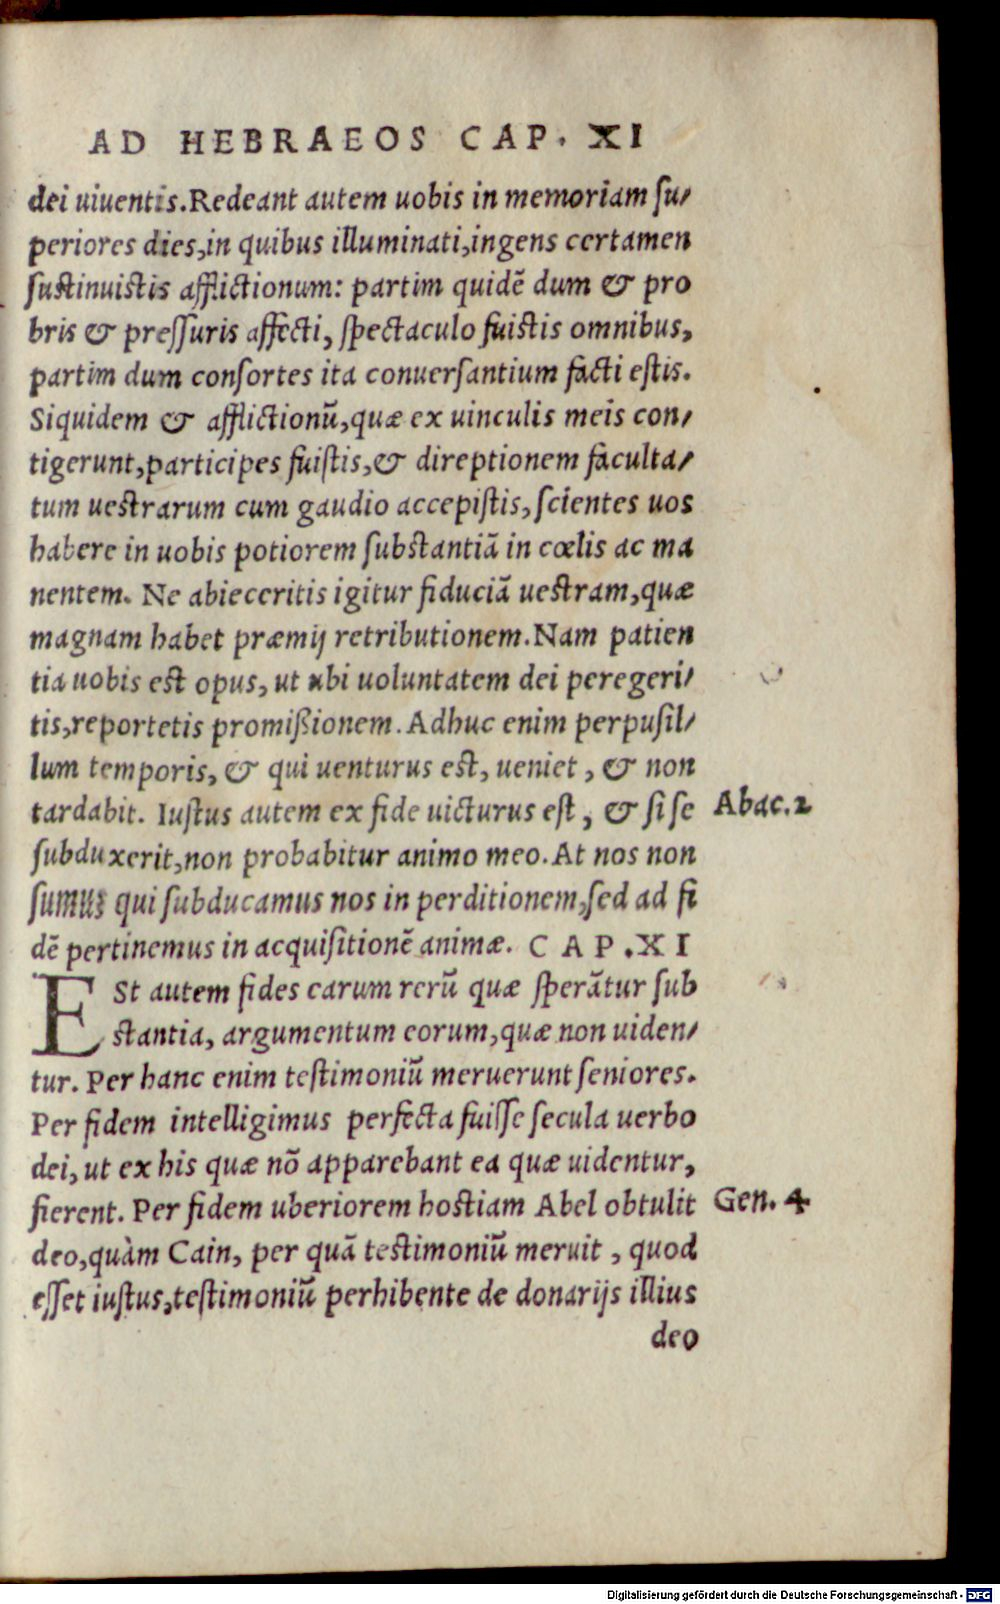 AD HEBRAEOS CAP. XI
dei uiuentis. Redeant autem uobis in memoriam su/
periores dies, in quibus illuminati, ingens certamen
sustinuistis afflictionum: partim quidē dum & pro
bris & pressuris affecti, spectaculo fuistis omnibus,
partim dum consortes ita conuersantium facti estis.
Siquidem & afflictionū, quæ ex uinculis meis con/
tigerunt, participes fuistis, & direptionem faculta/
tum uestrarum cum gaudio accepistis, scientes uos
habere in uobis potiorem substantiā in cœlis ac ma
nentem. Ne abieceritis igitur fiduciā uestram, quæ
magnam habet præmij retributionem. Nam patien
tia uobis est opus, ut ubi uoluntatem dei peregeri/
tis, reportetis promißionem. Adhuc enim perpusil/
lum temporis, & qui uenturus est, ueniet, & non
tardabit. Iustus autem ex fide uicturus est, & si se Abac. 2
subduxerit, non probabitur animo meo. At nos non
sumus qui subducamus nos in perditionem, sed ad fi
dē pertinemus in acquisitionē animæ. CAP. XI
ESt autem fides earum rerū quæ sperātur sub
stantia, argumentum eorum, quæ non uiden/
tur. Per hanc enim testimoniū meruerunt seniores.
Per fidem intelligimus perfecta fuisse secula uerbo
dei, ut ex his quæ nō apparebant ea quæ uidentur,
fierent. Per fidem uberiorem hostiam Abel obtulit Gen. 4
deo, quàm Cain, per quā testimoniū meruit, quod
esset iustus, testimoniū perhibente de donarijs illius
deo
Digitalisierung gefördert durch die Deutsche Forschungsgemeinschaft - DFG